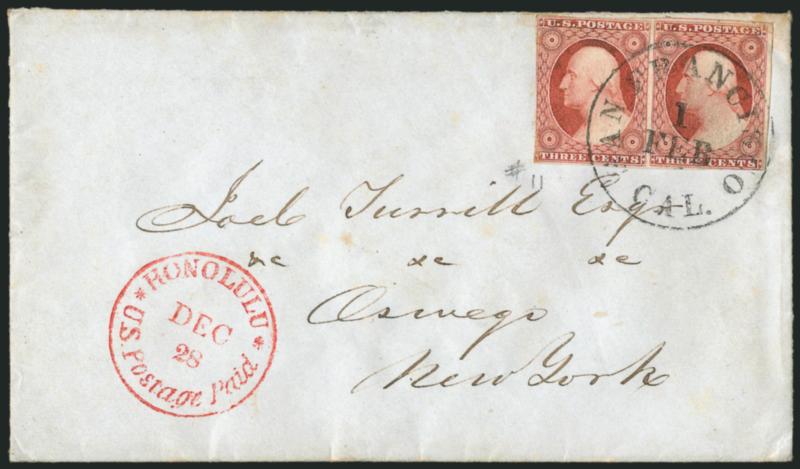 U.S. POSTAGE
THREE CENTS
U.S. POSTAGE
THREE CENTS
SAN FRANCISCO
1
FEB
CAL.
# 11
Joel Turrill Esqr
&c &c &c
Oswego
New York
* HONOLULU *
DEC
28
U.S. Postage Paid